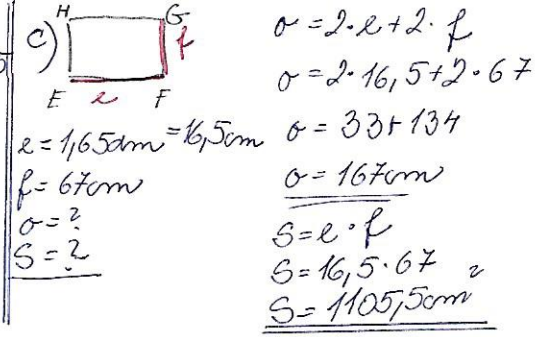 c)
H G
f
E e F
e = 1,65dm = 16,5cm
f = 67cm
o = ?
S = ?
o = 2·e + 2·f
o = 2·16,5 + 2·67
o = 33 + 134
o = 167cm
S = e·f
S = 16,5·67
S = 1105,5cm²